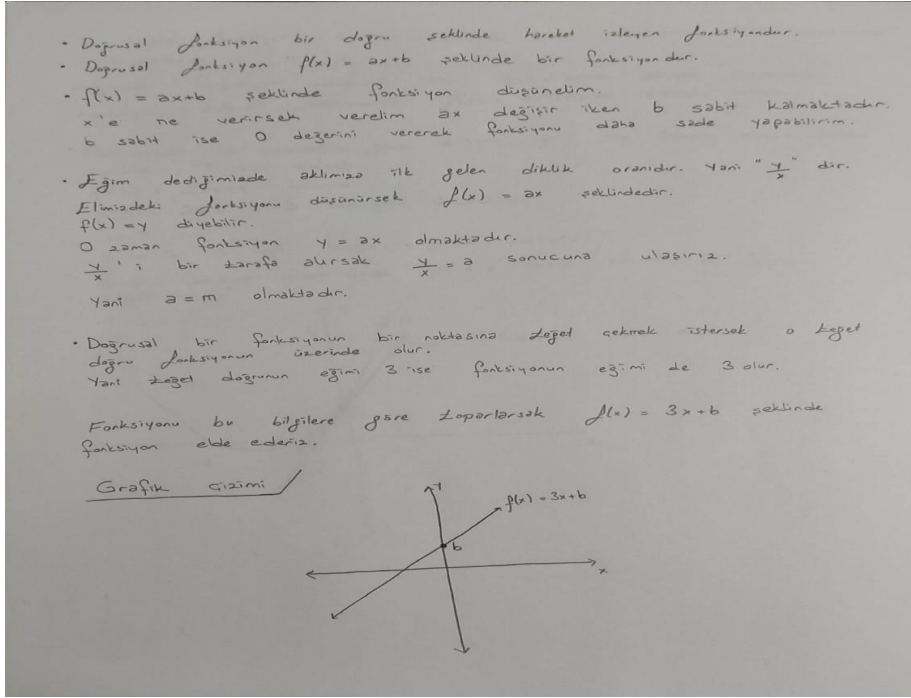 • Doğrusal fonksiyon bir doğru şeklinde hareket izleyen fonksiyondur.
• Doğrusal fonksiyon f(x) = ax+b şeklinde bir fonksiyondur.
• f(x) = ax+b şeklinde fonksiyon düşünelim.
x'e ne verirsek verelim ax değişir iken b sabit kalmaktadır.
b sabit ise 0 değerini vererek fonksiyonu daha sade yapabilirim.
• Eğim dediğimizde aklımıza ilk gelen diklik oranıdır. Yani "y/x" dir.
Elimizdeki fonksiyonu düşünürsek f(x) = ax şeklindedir.
f(x) = y diyebilir.
O zaman fonksiyon y = ax olmaktadır.
y/x 'i bir tarafa alırsak y/x = a sonucuna ulaşırız.
Yani a = m olmaktadır.
• Doğrusal bir fonksiyonun bir noktasına teğet çekmek istersek o teğet
doğru fonksiyonun üzerinde olur.
Yani teğet doğrunun eğimi 3 ise fonksiyonun eğimi de 3 olur.
Fonksiyonu bu bilgilere göre toparlarsak f(x) = 3x+b şeklinde
fonksiyon elde ederiz.
Grafik Çizimi
y
f(x) = 3x+b
b
x